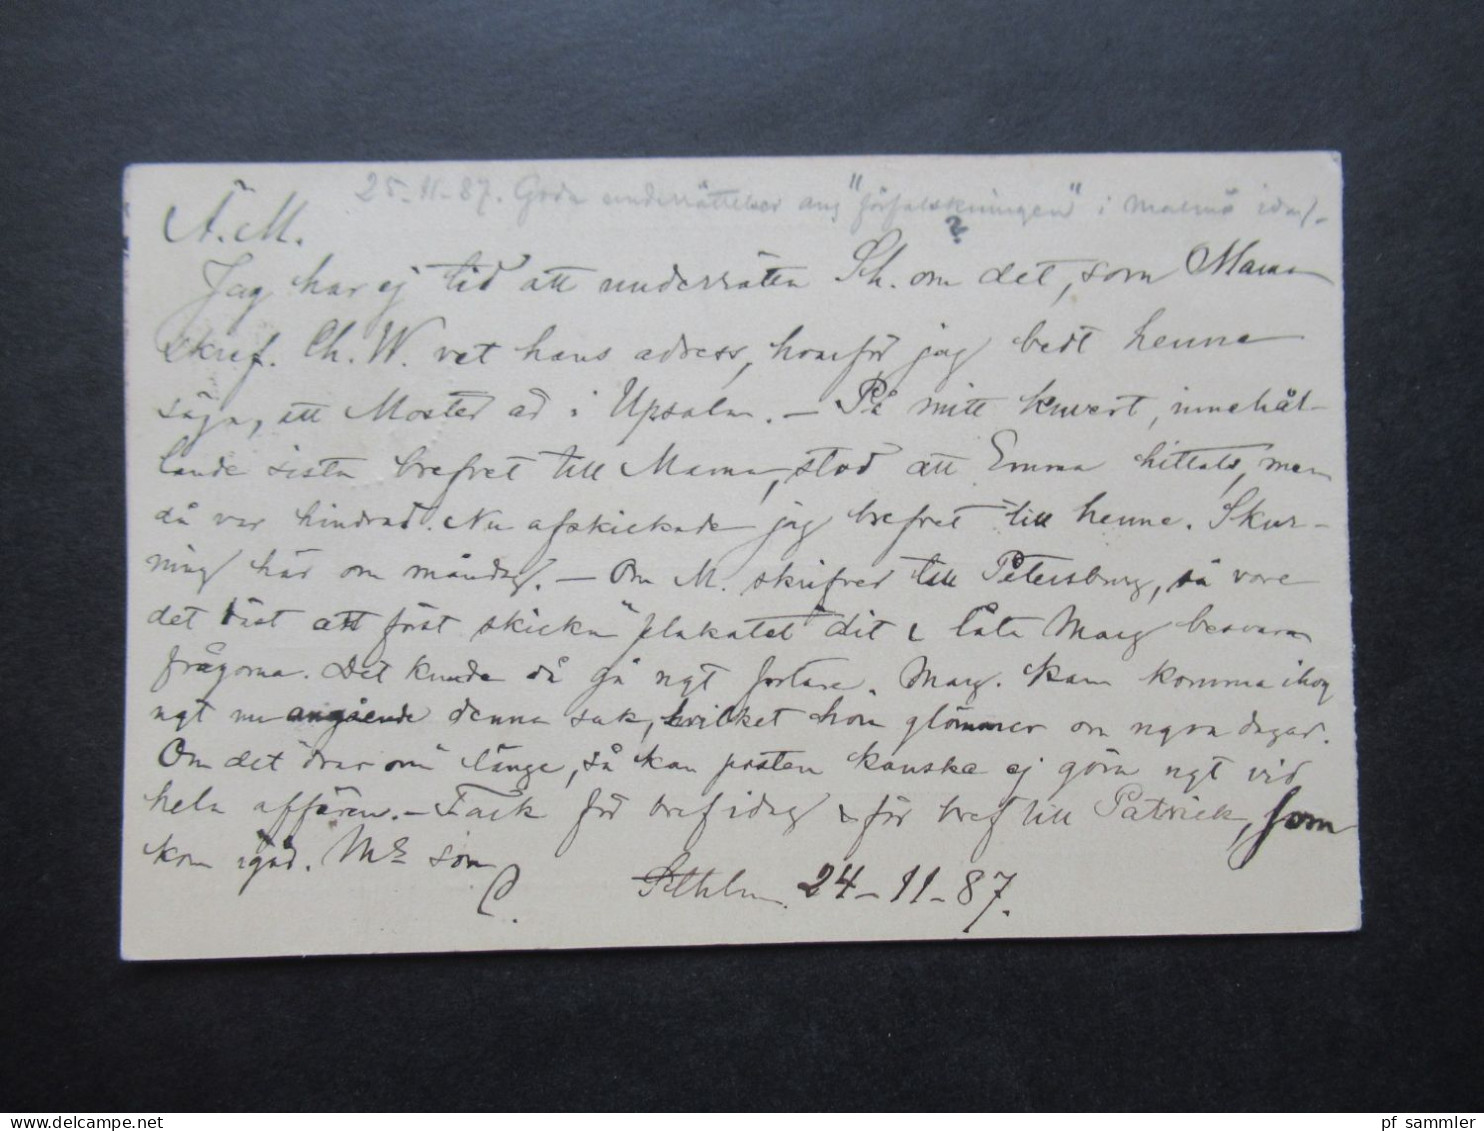 25-11-87. Goda underrättelser ang "förfalskningen" i Malmö idag.
?
Ä. M.
Jag har ej tid att underrätta Sh. om det, som Mama
skref. Ch. W. vet hans adress, hvarför jag bedt henne
säga, att Moster är i Upsala. — På mitt kuvert, innehål-
lande sista brefvet till Mama, stod att Emma hittats, men
då var hindrad. Nu afskickade jag brefvet till henne. Skur-
ning här om måndag. — Om M. skrifver till Petersburg, så vore
det bäst att först skicka plakatet dit & låta Marg besvara
frågorna. Det kunde då gå ngt fortare. Marg. kan komma ihog
ngt nu angående denna sak, hvilket hon glömmer om ngra dagar.
Om det drar om länge, så kan posten kanske ej göra ngt vid
hela affären. — Tack för bref idag & för bref till Patrick, som
kom igår. Ms son
C.
Sthlm. 24-11-87.
pf sammler
delcampe.net